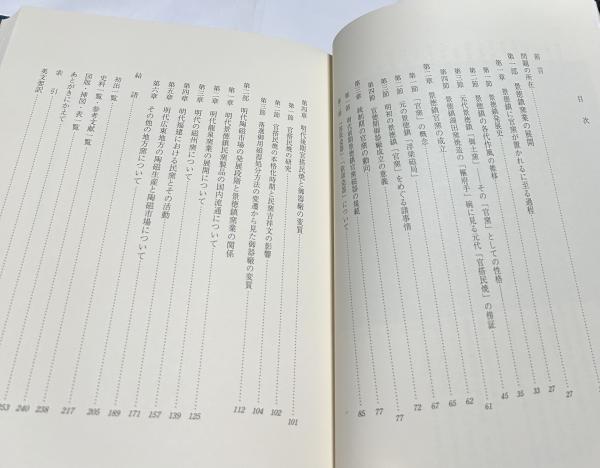 目次
前言
問題の所在 27
第一部 景徳鎮窯業の展開 27
第一章 景徳鎮に官窯が置かれるに至る過程
第一節 景徳鎮発展史 33
第二節 景徳鎮の各代作風の推移 35
第三節 元代景徳鎮「御土窯」 その「官窯」としての性格 45
第四節 景徳鎮湖田窯焼造の「樞府手」碗に見る元代「官搭民焼」の傍証 61
第二章 景徳鎮官窯の成立 62
第一節 「官窯」の概念 65
第二節 元の景徳鎮「浮梁磁局」 67
第三節 明初の景徳鎮「官窯」をめぐる諸事情 72
第四節 官窯御器廠成立の意義 77
第三章 統制期の官窯の動向 77
第一節 明代前期景徳鎮官窯磁器の規範 85
第四章 明代後期官搭民焼と御器廠の変質 101
第一節 官搭民焼の研究 102
第二節 官搭民焼の本格化時期と民窯吉祥文の影響 104
第三節 落選御用磁器処分方法の変遷から見た御器廠の変質 112
第二部 明代陶磁市場の発展段階と景徳鎮窯業の関係
第一章 明代景徳鎮民窯製品の国内流通について 125
第二章 明代龍泉窯業の展開について 139
第三章 明代の磁州窯について 157
第四章 明代福建における民窯とその活動 171
第五章 明代広東地方の陶磁生産と陶磁市場について 177
第六章 その他の地方窯について 189
結語 205
初出一覧 217
史料一覧・参考文献一覧 238
図版・挿図・表一覧 240
あとがきにかえて 253
索引
英文要訳